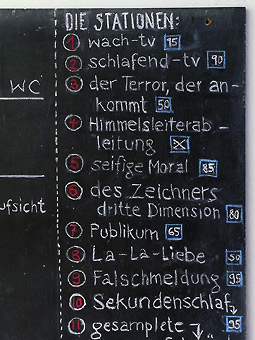 DIE STATIONEN:
1 wach-tv 95
2 schlafend-tv 90
3 der Terror, der an-
kommt 50
WC
4 Himmelsleiterab-
leitung
5 seifige Moral 85
6 des Zeichners
dritte Dimension 80
ufsicht
7 Publikum 65
8 La-La-Liebe 50
9 Falschmeldung 95
10 Sekundenschlaf
11 gesamplete 95